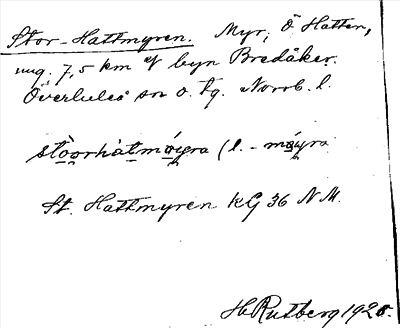 Stor-Hattmyren. Myr, Ö. Hatten,
ung. 7,5 km V byn Bredåker.
Överluleå sn o. tg. Norrb. l.
stòorhàtmøyra (l. -møyra
St. Hattmyren kG 36 N M.
H Rutberg 1928.